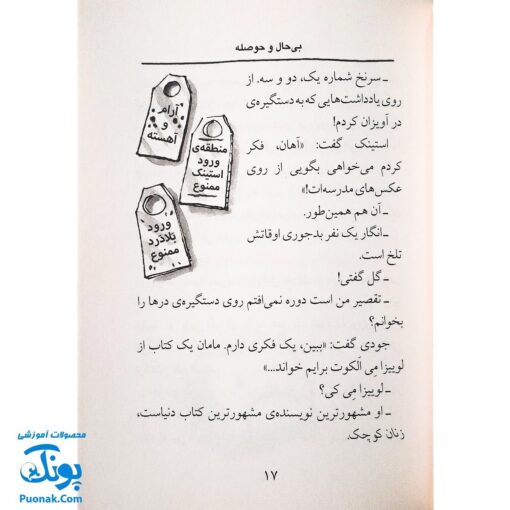 بی‌حال و حوصله
ـ سرنخ شماره یک، دو و سه. از
روی یادداشت‌هایی که به دستگیره‌ی
در آویزان کردم!
استینک گفت: «آهان، فکر
کردم می‌خواهی بگویی از روی
عکس‌های مدرسه‌ات!»
ـ آن هم همین‌طور.
ـ انگار یک نفر بدجوری اوقاتش
تلخ است.
ـ گل گفتی!
ـ تقصیر من است دوره نمی‌افتم روی دستگیره‌ی درها را
بخوانم؟
جودی گفت: «ببین، یک فکری دارم. مامان یک کتاب از
لوییزا مِی اَلکوت برایم خواند...»
ـ لوییزا مِی کی؟
ـ او مشهورترین نویسنده‌ی مشهورترین کتاب دنیاست،
زنان کوچک.
آرام
و
آهسته
منطقه‌ی
ورود
استینک
ممنوع
ورود
بلادرد
ممنوع
۱۷
محصولات آموزشی
پونک
Puonak.Com